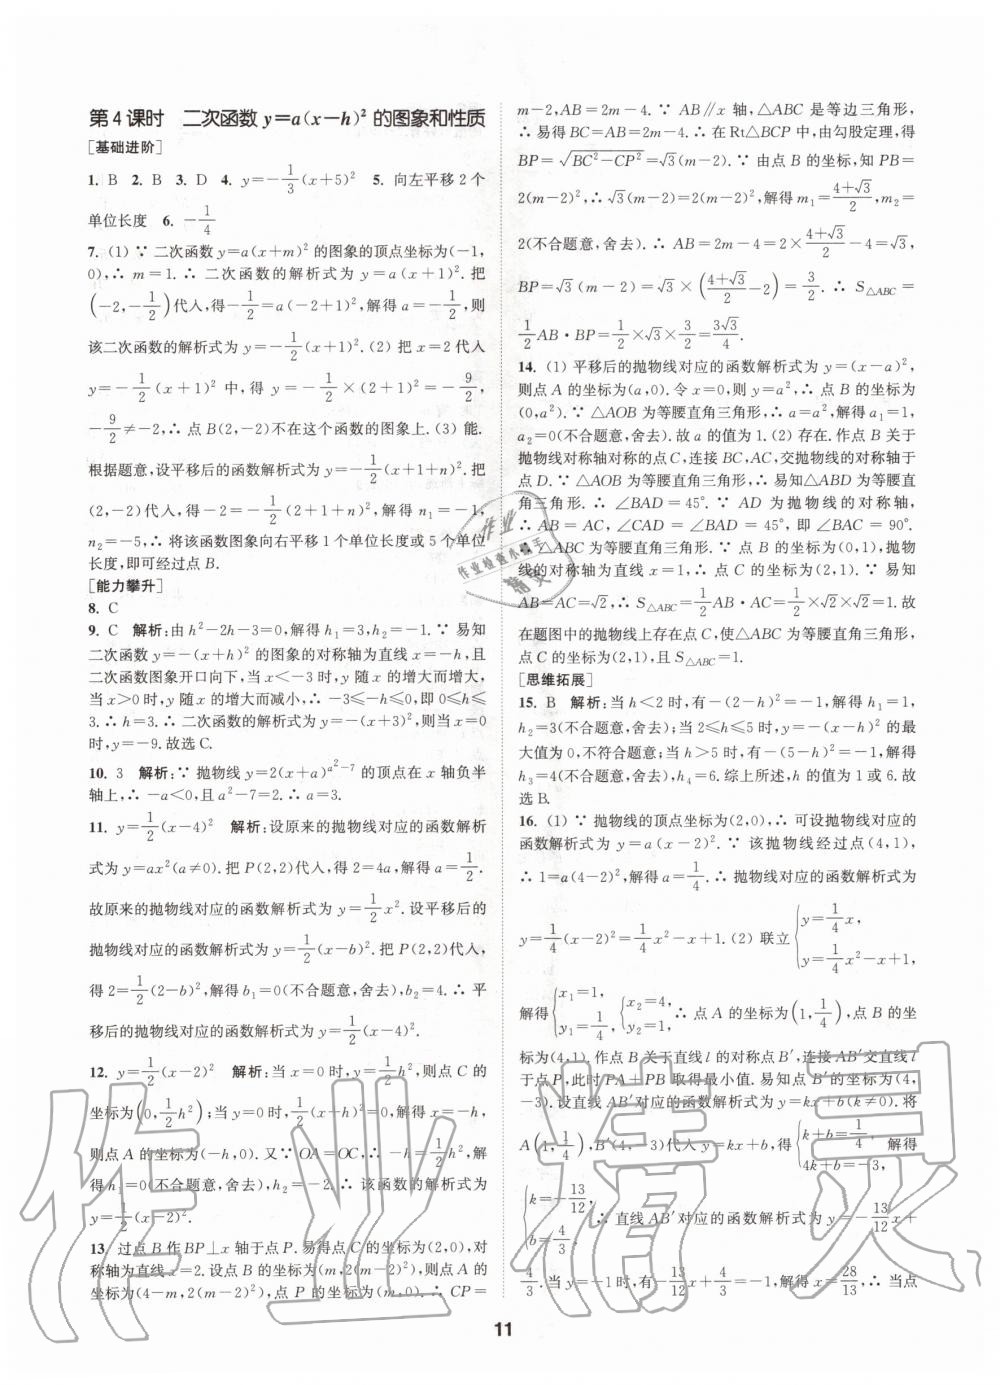 第 4 课时　二次函数 y=a(x-h)² 的图象和性质
[基础进阶]
1. B　2. B　3. D　4. y=-1/3(x+5)²　5. 向左平移 2 个
单位长度　6. -1/4
7. (1) ∵ 二次函数 y=a(x+m)² 的图象的顶点坐标为(-1,
0),∴ m=1.∴ 二次函数的解析式为 y=a(x+1)². 把
(-2,-1/2)代入,得-1/2=a(-2+1)²,解得 a=-1/2,则
该二次函数的解析式为 y=-1/2(x+1)².(2) 把 x=2 代入
y=-1/2(x+1)² 中,得 y=-1/2×(2+1)²=-9/2,
-9/2≠-2,∴ 点 B(2,-2)不在这个函数的图象上.(3) 能.
根据题意,设平移后的函数解析式为 y=-1/2(x+1+n)²,把
(2,-2)代入,得-2=-1/2(2+1+n)²,解得 n₁=-1,
n₂=-5,∴ 将该函数图象向右平移 1 个单位长度或 5 个单位
长度,即可经过点 B.
[能力攀升]
8. C
9. C　解析:由 h²-2h-3=0,解得 h₁=3,h₂=-1.∵ 易知
二次函数 y=-(x+h)² 的图象的对称轴为直线 x=-h,且
二次函数图象开口向下,当 x<-3 时,y 随 x 的增大而增大,
当 x>0 时,y 随 x 的增大而减小,∴ -3≤-h≤0,即 0≤h≤
3.∴ h=3.∴ 二次函数的解析式为 y=-(x+3)²,则当 x=0
时,y=-9.故选 C.
10. 3　解析:∵ 抛物线 y=2(x+a)^(a²-7) 的顶点在 x 轴负半
轴上,∴ -a<0,且 a²-7=2.∴ a=3.
11. y=1/2(x-4)²　解析:设原来的抛物线对应的函数解析
式为 y=ax²(a≠0).把 P(2,2)代入,得 2=4a,解得 a=1/2.
故原来的抛物线对应的函数解析式为 y=1/2x².设平移后的
抛物线对应的函数解析式为 y=1/2(x-b)².把 P(2,2)代入,
得 2=1/2(2-b)²,解得 b₁=0(不合题意,舍去),b₂=4.∴ 平
移后的抛物线对应的函数解析式为 y=1/2(x-4)².
12. y=1/2(x-2)²　解析:当 x=0 时,y=1/2h²,则点 C 的
坐标为(0,1/2h²);当 y=0 时,1/2(x+h)²=0,解得 x=-h,
则点 A 的坐标为(-h,0).又∵ OA=OC,∴ -h=1/2h²,解
得 h₁=0(不合题意,舍去),h₂=-2.∴ 该函数的解析式为
y=1/2(x-2)².
13. 过点 B 作 BP⊥x 轴于点 P.易得点 C 的坐标为(2,0),对
称轴为直线 x=2.设点 B 的坐标为(m,2(m-2)²),则点 A
的坐标为(4-m,2(m-2)²),点 P 的坐标为(m,0).∴ CP=
m-2,AB=2m-4.∵ AB∥x 轴,△ABC 是等边三角形,
∴ 易得 BC=AB=2m-4.∴ 在 Rt△BCP 中,由勾股定理,得
BP=√(BC²-CP²)=√3(m-2).∵ 由点 B 的坐标,知 PB=
2(m-2)²,∴ √3(m-2)=2(m-2)²,解得 m₁=(4+√3)/2,m₂=
2(不合题意,舍去).∴ AB=2m-4=2×(4+√3)/2-4=√3,
BP=√3(m-2)=√3×((4+√3)/2-2)=3/2.∴ S△ABC=
1/2AB·BP=1/2×√3×3/2=3√3/4.
14. (1) 平移后的抛物线对应的函数解析式为 y=(x-a)²,
则点 A 的坐标为(a,0).令 x=0,则 y=a²,∴ 点 B 的坐标为
(0,a²).∵ △AOB 为等腰直角三角形,∴ a=a²,解得 a₁=1,
a₂=0(不合题意,舍去).故 a 的值为 1.(2) 存在.作点 B 关于
抛物线对称轴对称的点 C,连接 BC,AC,交抛物线的对称轴于
点 D.∵ △AOB 为等腰直角三角形,∴ 易知△ABD 为等腰直
角三角形.∴ ∠BAD=45°.∵ AD 为抛物线的对称轴,
∴ AB=AC,∠CAD=∠BAD=45°,即∠BAC=90°.
∴ △ABC 为等腰直角三角形.∵ 点 B 的坐标为(0,1),抛物
线的对称轴为直线 x=1,∴ 点 C 的坐标为(2,1).∵ 易知
AB=AC=√2,∴ S△ABC=1/2AB·AC=1/2×√2×√2=1.故
在题图中的抛物线上存在点 C,使△ABC 为等腰直角三角形,
点 C 的坐标为(2,1),且 S△ABC=1.
[思维拓展]
15. B　解析:当 h<2 时,有-(2-h)²=-1,解得 h₁=1,
h₂=3(不合题意,舍去);当 2≤h≤5 时,y=-(x-h)² 的最
大值为 0,不符合题意;当 h>5 时,有-(5-h)²=-1,解得
h₃=4(不合题意,舍去),h₄=6.综上所述,h 的值为 1 或 6.故
选 B.
16. (1) ∵ 抛物线的顶点坐标为(2,0),∴ 可设抛物线对应的
函数解析式为 y=a(x-2)².∵ 该抛物线经过点(4,1),
∴ 1=a(4-2)²,解得 a=1/4.∴ 抛物线对应的函数解析式为
y=1/4(x-2)²=1/4x²-x+1.(2) 联立{y=1/4x, y=1/4x²-x+1,
解得{x₁=1, y₁=1/4, {x₂=4, y₂=1, ∴ 点 A 的坐标为(1,1/4),点 B 的坐
标为(4,1).作点 B 关于直线 l 的对称点 B′,连接 AB′交直线 l
于点 P,此时 PA+PB 取得最小值.易知点 B′的坐标为(4,
-3).设直线 AB′对应的函数解析式为 y=kx+b(k≠0).将
A(1,1/4),B′(4,-3)代入 y=kx+b,得{k+b=1/4, 4k+b=-3, 解得
{k=-13/12, b=4/3, ∴ 直线 AB′对应的函数解析式为 y=-13/12x+
4/3.当 y=-1 时,有-13/12x+4/3=-1,解得 x=28/13,∴ 当点
11
作业精灵
作业
作业检查小帮手
精灵